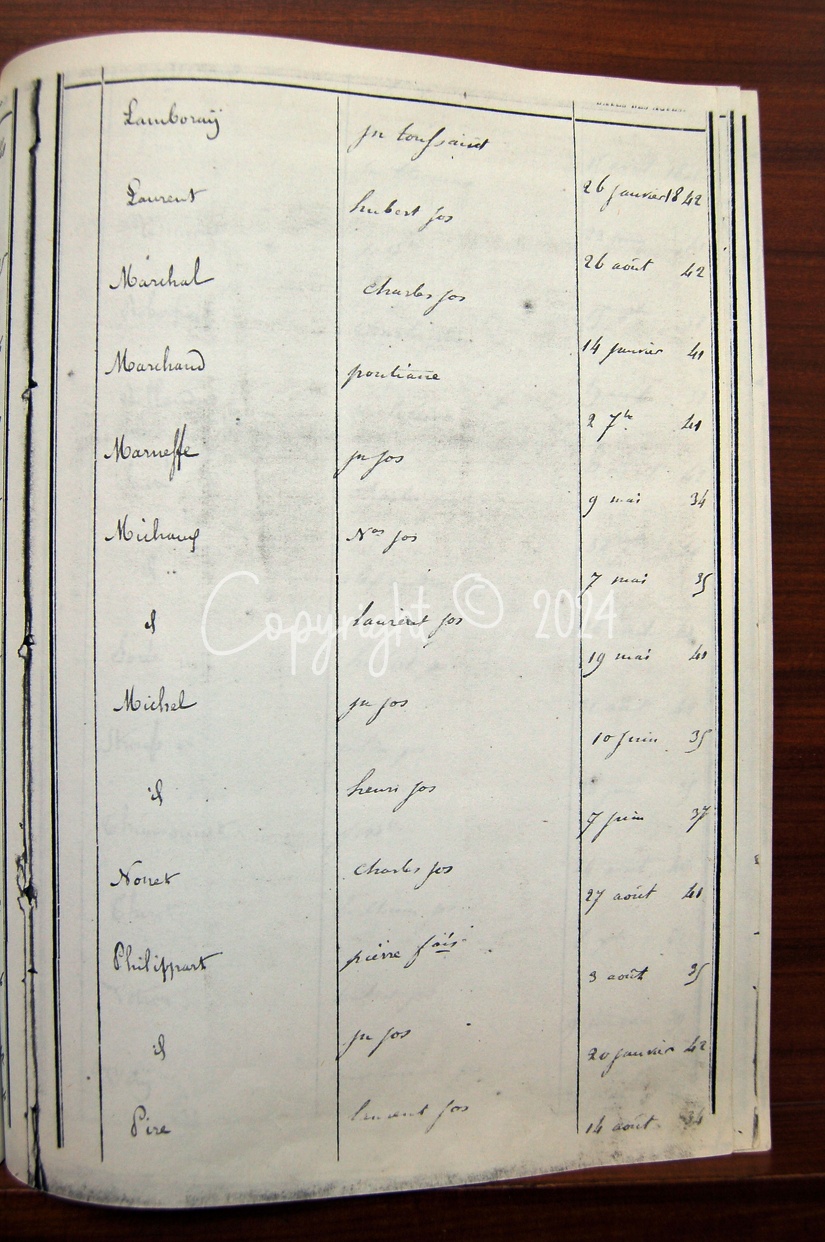 Lamboraÿ jn toussaint 26 janvier 1842
Laurent hubert jos 26 août 42
Maréchal Charles jos 14 janvier 41
Marchand pontiane 2 7bre 41
Marneffe jn jos 9 mai 34
Michaux Nas jos 7 mai 35
id laurent jos 19 mai 41
Copyright © 2024
Michel jn jos 10 juin 35
id henri jos 7 juin 37
Nonet Charles jos 27 août 41
Philippart pierre fçois 3 août 35
id jn jos 20 janvier 42
Pire laurent jos 14 août 34